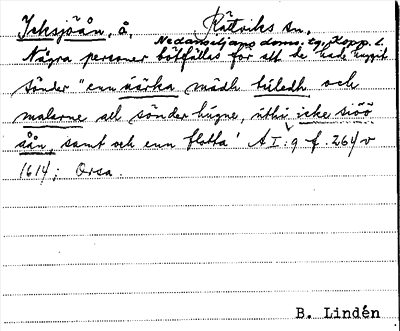 Icksjöån, å, Rättviks sn,
Nedansiljans doms. tg, Kopp. l.
Några personer bötfälles för att de hade huggit
sönder "enn säärka mädh tiladh och
malerne all sönder hugne, uthi icke siöö
åån, samt och enn flotta" A I:9 f. 264 v
1614; Orsa.
B. Lindén